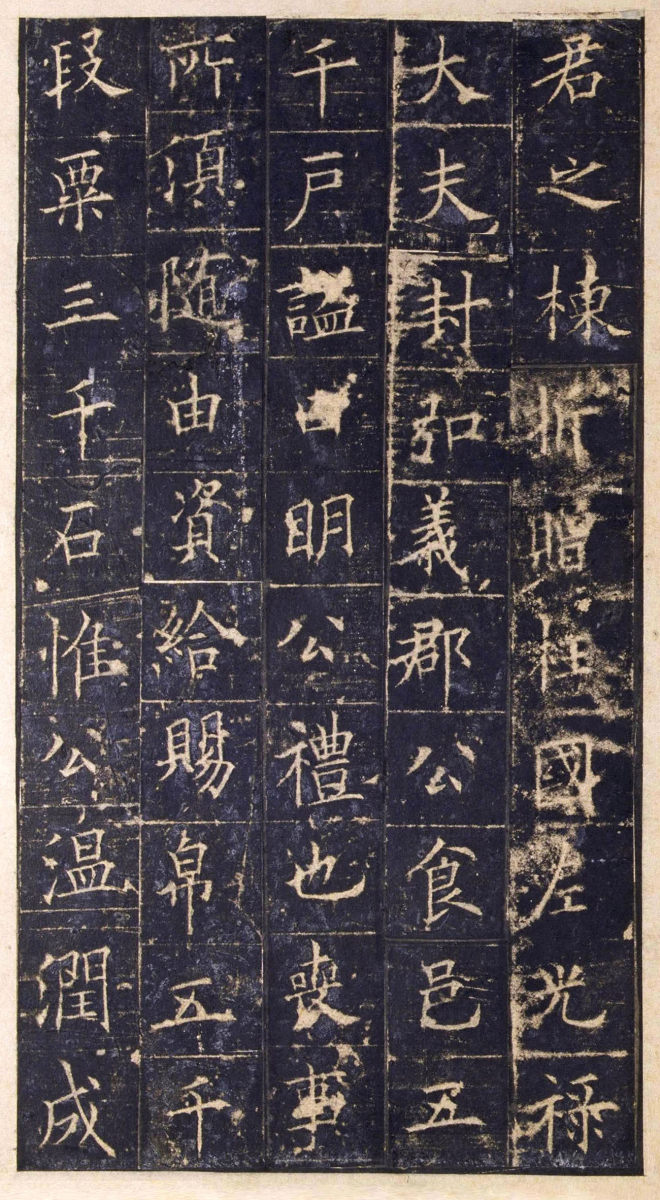 君之棟折贈柱國左光祿
大夫封弘義郡公食邑五
千戶謚曰明公禮也喪事
所須随由資給賜帛五千
段粟三千石惟公温潤成